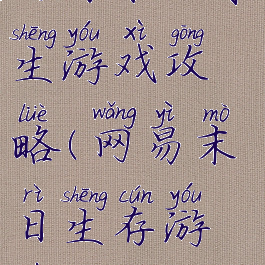 shēng yóu xì gōng
生游戏攻
lüè wǎng yì mò
略(网易末
rì shēng cún yóu
日生存游